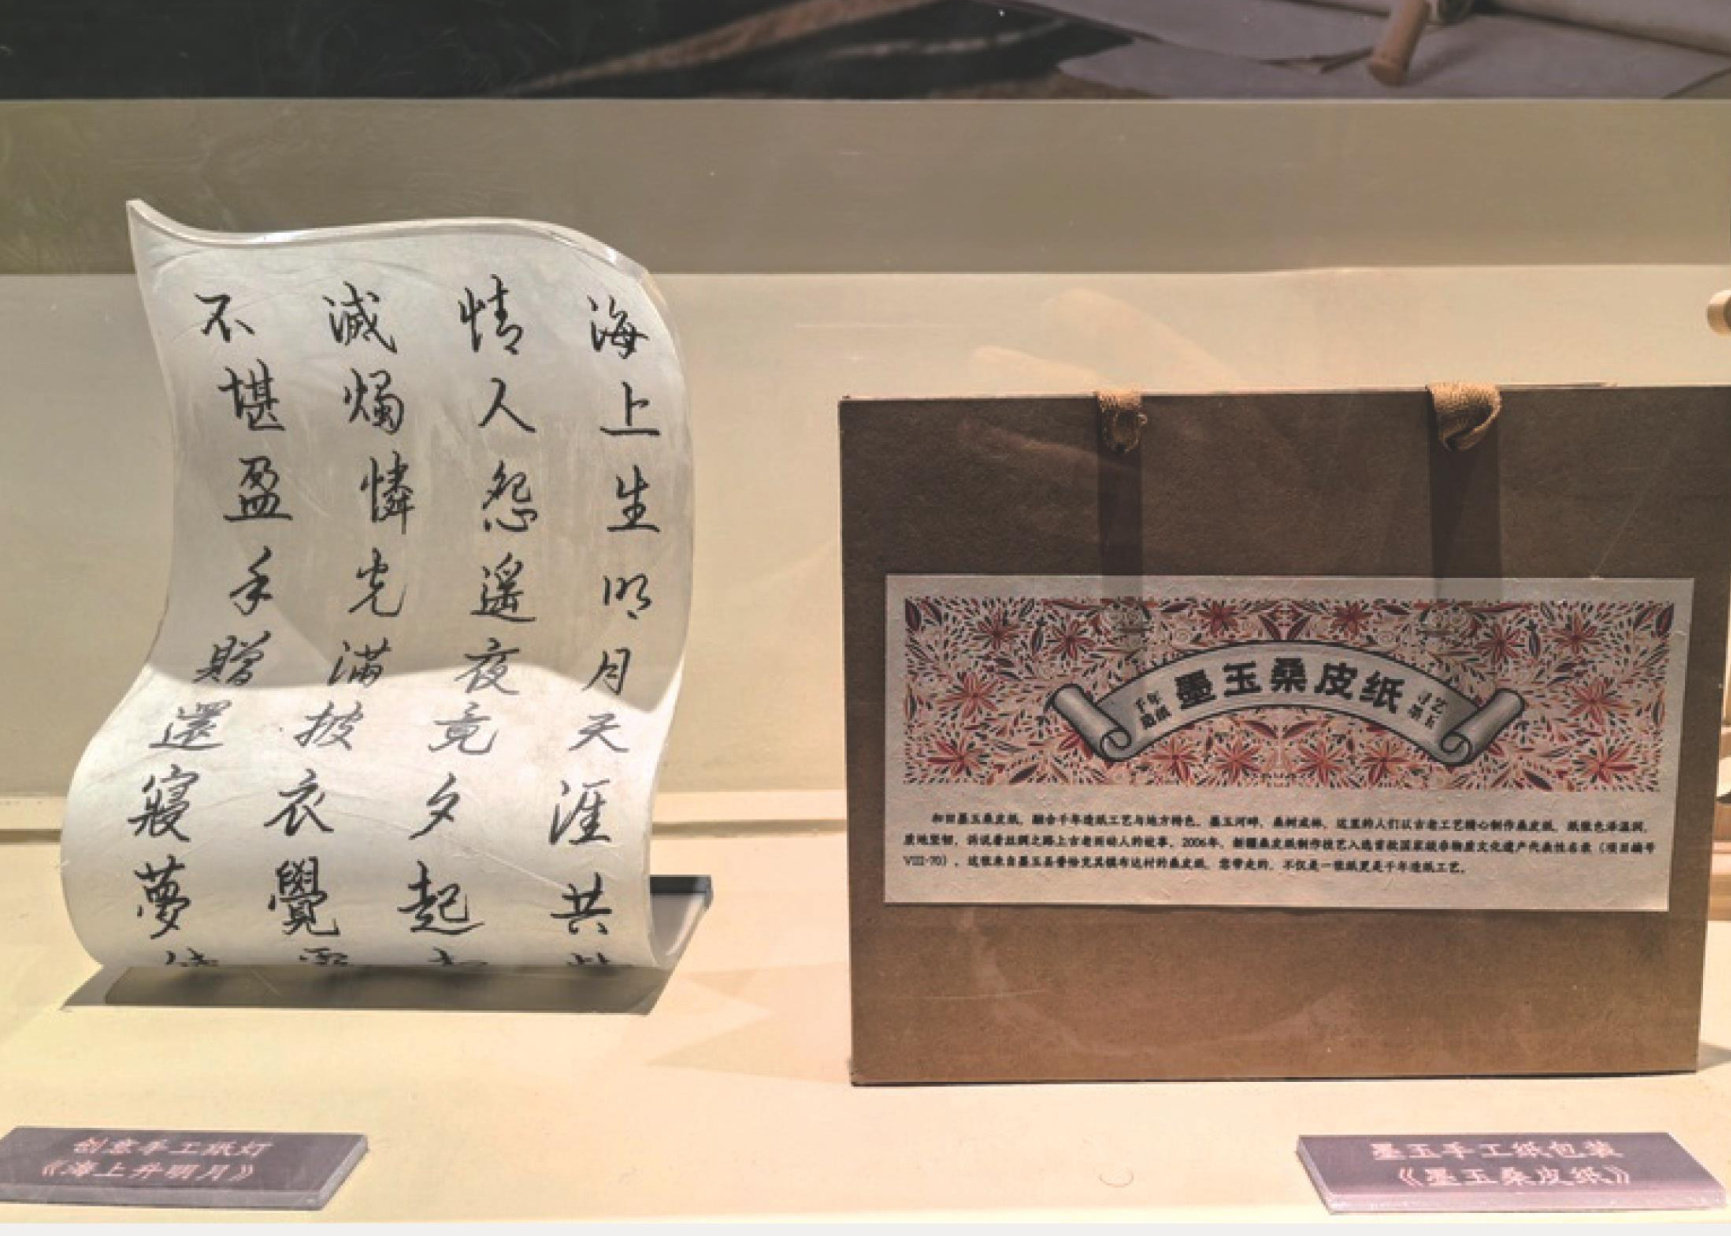 海上生明月天涯共
情人怨遙夜竟夕起
滅燭憐光滿披衣覺
不堪盈手贈還寢夢
千年
墨玉桑皮纸
寻艺
墨玉
和田墨玉桑皮纸，融合千年造纸工艺与地方特色。墨玉河畔，桑树成林，这里的人们以古老工艺精心制作桑皮纸，纸张色泽温润，
质地坚韧，诉说着丝绸之路上古老而动人的故事。2006年，新疆桑皮纸制作技艺入选首批国家级非物质文化遗产代表性名录（项目编号
VIII-70）。这张来自墨玉县普恰克其镇布达村的桑皮纸，您带走的，不仅是一张纸更是千年造纸工艺。
创意手工纸灯
《海上升明月》
墨玉手工纸包装
《墨玉桑皮纸》